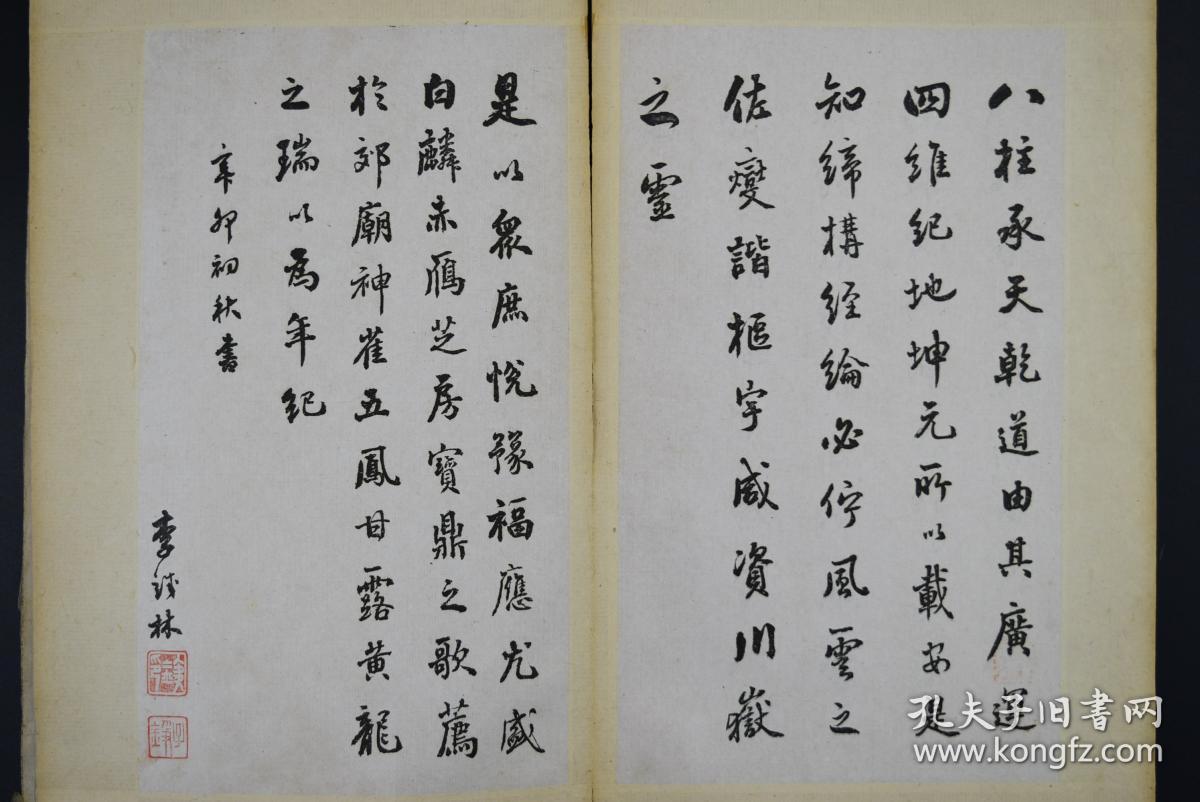 八柱承天乾道由其廣運
四維紀地坤元所以載安是
知締構經綸必佇風雲之
佐燮諧樞宇咸資川嶽
之靈
是以眾庶悅豫福應尤盛
白麟赤鴈芝房寶鼎之歌薦
於郊廟神雀五鳳甘露黃龍
之瑞以為年紀
辛卯初秋書
李林
孔夫子旧书网
www.kongfz.com